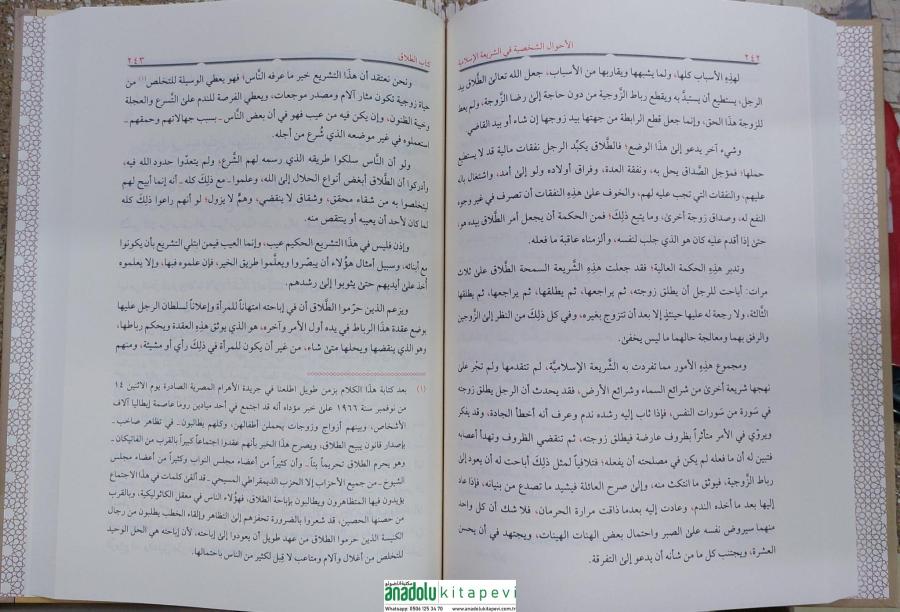 الأحوال الشخصية في الشريعة الإسلامية
٢٤٢
لهذِهِ الأسباب كلها، ولما يشبهها ويقاربها من الأسباب، جعل الله تعالىٰ الطَّلاق بيد
الرجل، يستطيع أن يستبدَّ به ويقطع رباط الزَّوجية من دون حاجة إلىٰ رضا الزَّوجة، ولم يعط
للزوجة هذا الحق، وإنما جعل قطع الرابطة من جهتها بيد زوجها إن شاء أو بيد القاضي
وشيء آخر يدعو إلىٰ هذا الوضع؛ فالطَّلاق يكبِّد الرجل نفقات مالية قد لا يستطيع
حملها؛ فمؤجل الصَّداق يحل به، ونفقة العدة، وفراق أولاده ولو إلىٰ أمد، واشتغال باله
عليهم، والنفقات التي تجب عليه لهم، والخوف علىٰ هذِهِ النفقات أن تصرف في غير وجوه
النفع له، وصداق زوجة أخرىٰ، وما يتبع ذلِكَ؛ فمن الحكمة أن يجعل أمر الطَّلاق بيده هو،
حتىٰ إذا أقدم عليه كان هو الذي جلب لنفسه، وألزمناه عاقبة ما فعله.
وتدبر هذِهِ الحكمة العالية؛ فقد جعلت هذِهِ الشَّريعة السمحة الطَّلاق علىٰ ثلاث
مرات: أباحت للرجل أن يطلق زوجته، ثم يراجعها، ثم يطلقها، ثم يراجعها، ثم يطلقها
الثَّالثة، ولا رجعة له عليها حينئذٍ إلا بعد أن تتزوج بغيره، وفي كل ذلِكَ من النظر إلىٰ الزَّوجين
والرفق بهما ومعالجة حالهما ما ليس يخفىٰ.
ومجموع هذِهِ الأمور مما تفردت به الشَّريعة الإسلاميَّة، لم تتقدمها ولم تَجْرِ علىٰ
نهجها شريعة أخرىٰ من شرائع السماء وشرائع الأرض، فقد يحدث أن الرجل يطلق زوجته
في سَورة من سَورات النفس، فإذا ثاب إليه رشده ندم وعرف أنه أخطأ الجادة، وقد يفكر
ويروّي في الأمر متأثراً بظروف عارضة فيطلق زوجته، ثم تنقضي الظروف وتهدأ أعصابه
فتبين له أن ما فعله لم يكن في مصلحته أن يفعله؛ فتلافياً لمثل ذلِكَ أباحت له أن يعود إلىٰ
رباط الزَّوجية، فيوثق ما انتكث منه، وإلىٰ صرح العائلة فيشيد ما تصدع من بنيانه، فإذا عاد
إليها بعد ما أخذه الندم، وعادت إليه بعدما ذاقت مرارة الحرمان، فلا شك أن كل واحد
منهما سيروض نفسه علىٰ الصبر واحتمال بعض الهنات الهينات، ويجتهد في أن يحسن
العشرة، ويجتنب كل ما من شأنه أن يدعو إلىٰ التفرقة.
كتاب الطلاق
٢٤٣
ونحن نعتقد أن هذا التشريع خير ما عرفه النَّاس؛ فهو يعطي الوسيلة للتخلص (١) من
حياة زوجية تكون مثار آلام ومصدر موجعات، ويعطي الفرصة للندم علىٰ التَّسرع والعجلة
رخية الظنون، وإن يكن فيه من عيب فهو في أن بعض النَّاس ـ بسبب جهالاتهم وحمقهم ـ
استعملوه في غير موضعه الذي شُرع من أجله.
ولو أن النَّاس سلكوا طريقه الذي رسمه لهم الشَّرع، ولم يتعدَّوا حدود الله فيه،
وأدركوا أن الطَّلاق أبغض أنواع الحلال إلىٰ الله، وعلموا ـ مع ذلِكَ كله ـ أنه إنما أبيح لهم
ليتخلصوا به من شقاء محقق، وشقاق لا ينقضي، وهمٍّ لا يزول؛ لو أنهم راعوا ذلِكَ كله
لما كان لأحد أن يعيبه أو ينتقص منه.
وإذن فليس في هذا التشريع الحكيم عيب، وإنما العيب فيمن ابتلي التشريع بأن يكونوا
مع أبنائه، وسبيل أمثال هؤلاء أن يبصّروا ويعلَّموا طريق الخير، فإن علموه فبها، وإلا يعلموه
أخذ علىٰ أيديهم حتىٰ يثوبوا إلىٰ رشدهم.
ويزعم الذين حرَّموا الطَّلاق أن في إباحته امتهاناً للمرأة وإعلاناً لسلطان الرجل عليها
بوضع عقدة هذا الرباط في يده أول الأمر وآخره، هو الذي يوثق هذِهِ العقدة ويحكم رباطها،
وهو الذي ينقضها ويحلها متىٰ شاء، من غير أن يكون للمرأة في ذلِكَ رأي أو مشيئة، ومنهم
(١) بعد كتابة هذا الكلام بزمن طويل اطلعنا في جريدة الأهرام المصرية الصادرة يوم الاثنين ١٤
من نوفمبر سنة ١٩٦٦ علىٰ خبر مؤداه أنه قد اجتمع في أحد ميادين روما عاصمة إيطاليا آلاف
الأشخاص، وبينهم أزواج وزوجات يحملن أطفالهن، وكلهم يطالبون ـ في تظاهر صاخب ـ
بإصدار قانون يبيح الطلاق، ويصرح هذا الخبر بأنهم عقدوا اجتماعاً كبيراً بالقرب من الفاتيكان ـ
وهو يحرم الطلاق تحريماً بتاً ـ وأن كثيراً من أعضاء مجلس النواب وكثيراً من أعضاء مجلس
الشيوخ ـ من جميع الأحزاب إلا الحزب الديمقراطي المسيحي ـ قد ألقىٰ كلمات في هذا الاجتماع
يؤيدون فيها المتظاهرون ويطالبون بإباحة الطلاق، فهؤلاء الناس في معقل الكاثوليكية، وبالقرب
من حصنها الحصين، قد شعروا بالضرورة تحفزهم إلىٰ التظاهر وإلقاء الخطب يطلبون من رجال
الكنيسة الذين حرموا الطلاق من عهد طويل أن يعودوا إلىٰ إباحته، لأن إباحته هي الحل الوحيد
للتخلص من أغلال وآلام ومتاعب لا قِبل لكثير من الناس باحتمالها.
مكتبة اناضولو
anadolu kitapevi
Whatsapp: 0506 125 34 70 www.anadolukitapevi.com.tr